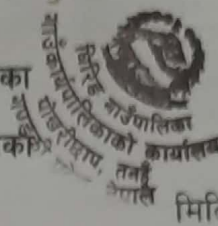 का
का
घिरिङ गाउँपालिका
गाउँकार्यपालिकाको कार्यालय
पोखरीछाप, तनहुँ
नेपाल
मिति